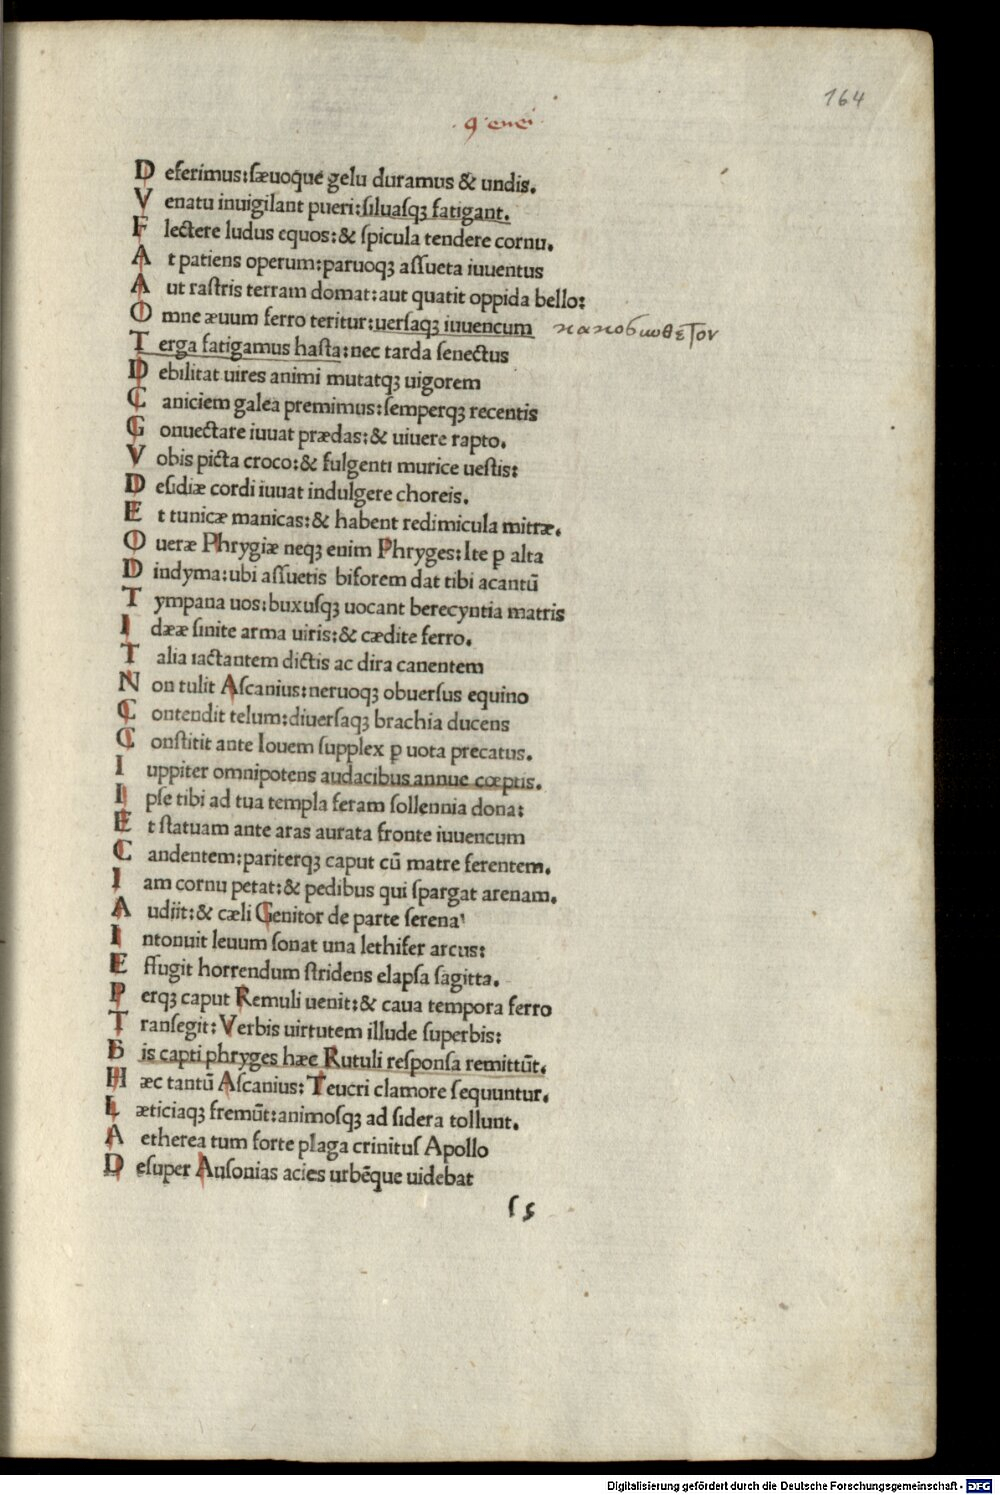 164
.9. enei.
D eferimus:sæuoque gelu duramus & undis.
V enatu inuigilant pueri:siluasqꝫ fatigant.
F lectere ludus equos:& spicula tendere cornu.
A t patiens operum:paruoqꝫ assueta iuuentus
A ut rastris terram domat:aut quatit oppida bello:
O mne æuum ferro teritur:uersaqꝫ iuuencum
T erga fatigamus hasta:nec tarda senectus
D ebilitat uires animi mutatqꝫ uigorem
C aniciem galea premimus:semperqꝫ recentis
G onuectare iuuat prædas:& uiuere rapto.
V obis picta croco:& fulgenti murice uestis:
D esidiæ cordi iuuat indulgere choreis.
E t tunicæ manicas:& habent redimicula mitræ.
O ueræ Phrygiæ neqꝫ enim Phryges:Ite p alta
D indyma:ubi assuetis biforem dat tibi acantũ
T ympana uos:buxusqꝫ uocant berecyntia matris
I dææ sinite arma uiris:& cædite ferro.
T alia iactantem dictis ac dira canentem
N on tulit Ascanius:neruoqꝫ obuersus equino
C ontendit telum:diuersaqꝫ brachia ducens
C onstitit ante Iouem supplex p uota precatus.
I uppiter omnipotens audacibus annue cœptis.
I pse tibi ad tua templa feram sollennia dona:
E t statuam ante aras aurata fronte iuuencum
C andentem:pariterqꝫ caput cũ matre ferentem.
I am cornu petat:& pedibus qui spargat arenam.
A udiit:& cæli Genitor de parte serena
I ntonuit leuum sonat una lethifer arcus:
E ffugit horrendum stridens elapsa sagitta.
P erqꝫ caput Remuli uenit:& caua tempora ferro
T ransegit:Verbis uirtutem illude superbis:
B is capti phryges hæc Rutuli responsa remittũt.
H æc tantũ Ascanius:Teucri clamore sequuntur.
L æticiaqꝫ fremũt:animosqꝫ ad sidera tollunt.
A etherea tum forte plaga crinitus Apollo
D esuper Ausonias acies urbẽque uidebat
Digitalisierung gefördert durch die Deutsche Forschungsgemeinschaft - DFG